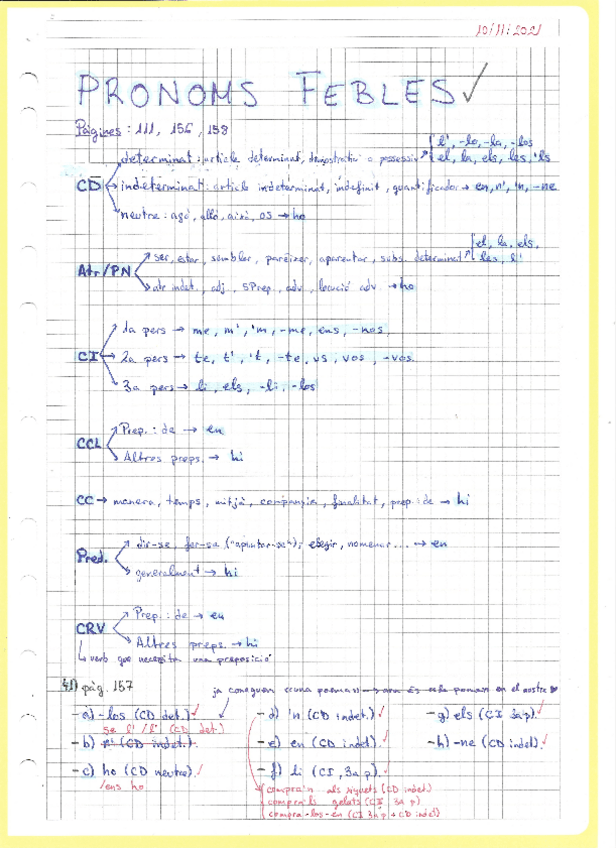 10/11/2021
PRONOMS FEBLES ✓
Pàgines: 111, 156, 158
determinat: article determinat, demostratiu o possessiu → l', -lo, -la, -los
el, la, els, les, 'ls
CD → indeterminat: article indeterminat, indefinit, quantificador → en, n', 'n, -ne
neutre: açò, allò, això, os → ho
el, la, els,
les, l'
Atr/PN
ser, estar, semblar, paréixer, aparentar, subs. determinat
atr indet., adj., SPrep., adv., locució adv. → ho
1a pers → me, m', 'm, -me, ens, -nos,
CI → 2a pers → te, t', 't, -te, us, vos, -vos.
3a pers → li, els, -li, -los
Prep.: de → en
CCL
Altres preps. → hi
CC → manera, temps, mitjà, companyia, finalitat, prep: de → hi
dir-se, fer-se ("apuntar-se"), elegir, nomenar... → en
Pred.
generalment → hi
Prep.: de → en
CRV
Altres preps. → hi
↳ verb que necessita una preposició
41) pàg. 157
ja coneguem → ara és en el nostre
-a) -los (CD det.) ✓
se l' / l' (CD det.)
-b) n' (CD indet.)
-c) ho (CD neutre) ✓
/ens ho
-d) 'n (CD indet.) ✓
-e) en (CD indet) ✓
-f) li (CI, 3a p) ✓
compra'n als xiquets (CD indet)
compra'ls gelats (CI, 3a p)
compra-los-en (CI 3a p + CD indet)
-g) els (CI 3a p) ✓
-h) -ne (CD indet) ✓